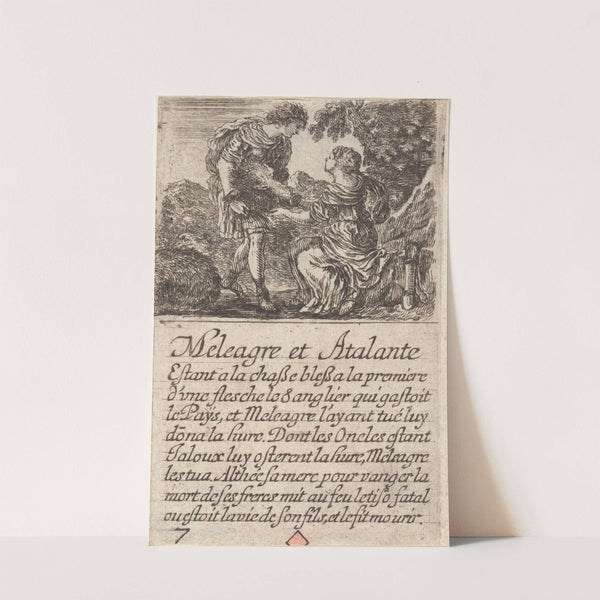 Meleagre et Atalante
Estant a la chaße bleßa la premiere
d'vne flesche le Sanglier qui gastoit
le Païs, et Meleagre l'ayant tué luy
dõna la hure. Dont les Oncles estant
Jaloux luy osterent la hure, Meleagre
les tua. Althée sa mere pour vanger la
mort de ses freres mit au feu le tisõ fatal
ou estoit la vie de son fils, et le fit mourir.
7